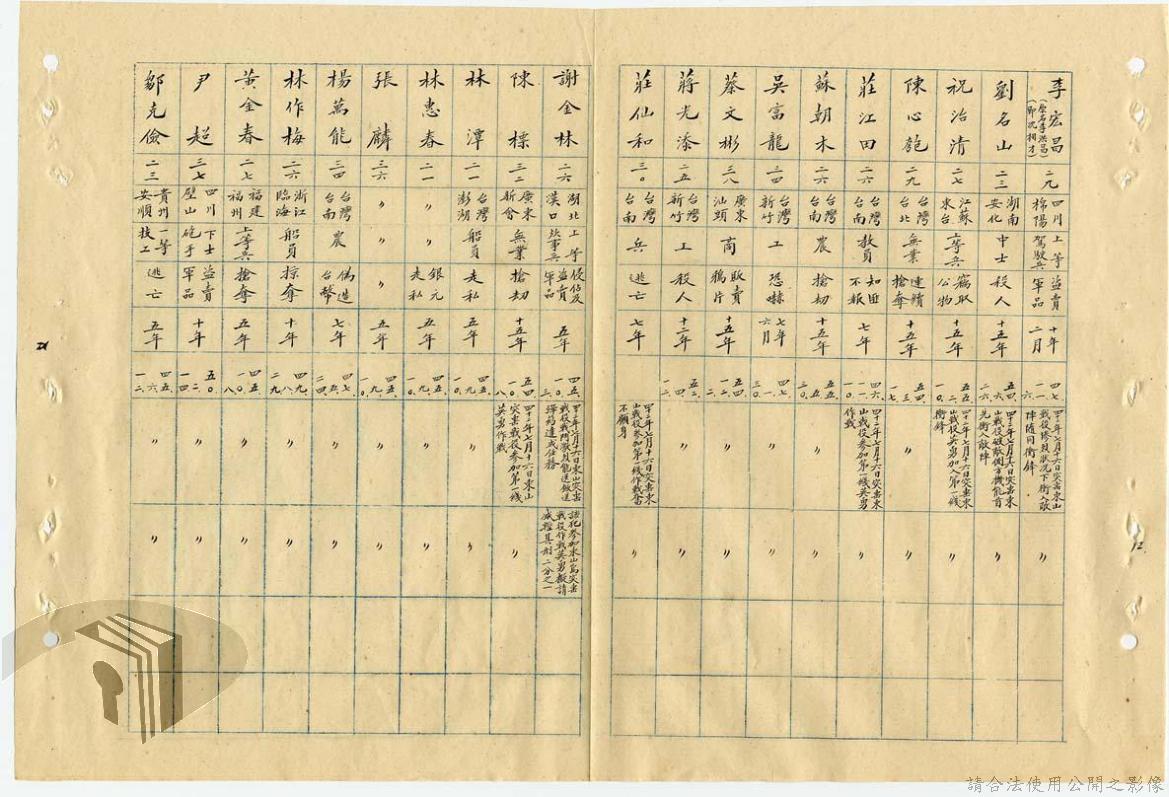 李宏昌 (原名李洪昌) 二九 四川 綿陽 上等 駕駛兵 盜賣 軍品 十年 二月 四七、一一、六 〃
劉名山 二三 湖南 安化 中士 殺人 十五年 五四、六、二六 四十二年七月十六日突擊東山戰役 〃
祝治清 二七 江蘇 東台 上等兵 竊取 公物 十五年 五五、二、一〇 四十二年七月十六日突擊東山戰役英勇加入第一線衝鋒 〃
陳心 二九 台灣 台北 無業 連續 搶奪 十五年 〃 〃
莊江田 二六 台灣 台南 教員 知匪 不報 七年 四六、一一、一〇 四十二年七月十六日突擊東山戰役參加第一線英勇作戰 〃
蘇朝木 二六 台灣 台南 農 搶劫 十五年 〃 〃
吳富龍 二四 台灣 新竹 工 恐嚇 七年 六月 〃 〃
蔡文彬 三八 廣東 汕頭 商 販賣 鴉片 十五年 〃 〃
蔣光添 二五 台灣 新竹 工 殺人 十二年 〃 〃
莊仙和 三〇 台灣 台南 兵 逃亡 七年 四十二年七月十六日突擊東山戰役參加第一線作戰奮不顧身 〃
謝金林 二六 湖北 漢口 上等 炊事兵 侵佔及 盜賣 軍品 五年 四五、一〇、三 四十二年七月十六日東山突擊戰役 達成任務 該犯參加東山島突擊戰役作戰英勇擬請減輕其刑二分之一
陳標 三二 廣東 新會 無業 搶劫 十五年 五四、一〇、八 四十二年七月十六日東山突擊戰役參加第一線英勇作戰 〃
林潭 二一 台灣 澎湖 船員 走私 五年 四五、九、一〇 〃 〃
林惠春 二一 〃 〃 銀元 走私 五年 四五、九、一〇 〃 〃
張麟 三六 〃 〃 〃 五年 四五、九、一〇 〃 〃
楊萬能 三四 台灣 台南 農 偽造 台幣 七年 四七、五、二四 〃 〃
林作梅 二六 浙江 臨海 船員 掠奪 十年 四九、八、二九 〃 〃
黃金春 二七 福建 福州 上等兵 搶奪 五年 四五、一〇、八 〃 〃
尹超 三七 四川 璧山 下士 砲手 盜賣 軍品 十年 五〇、二、一四 〃 〃
鄒克儉 二三 貴州 安順 一等 技工 逃亡 五年 四五、六、一二 〃 〃
12.
請合法使用公開之影像